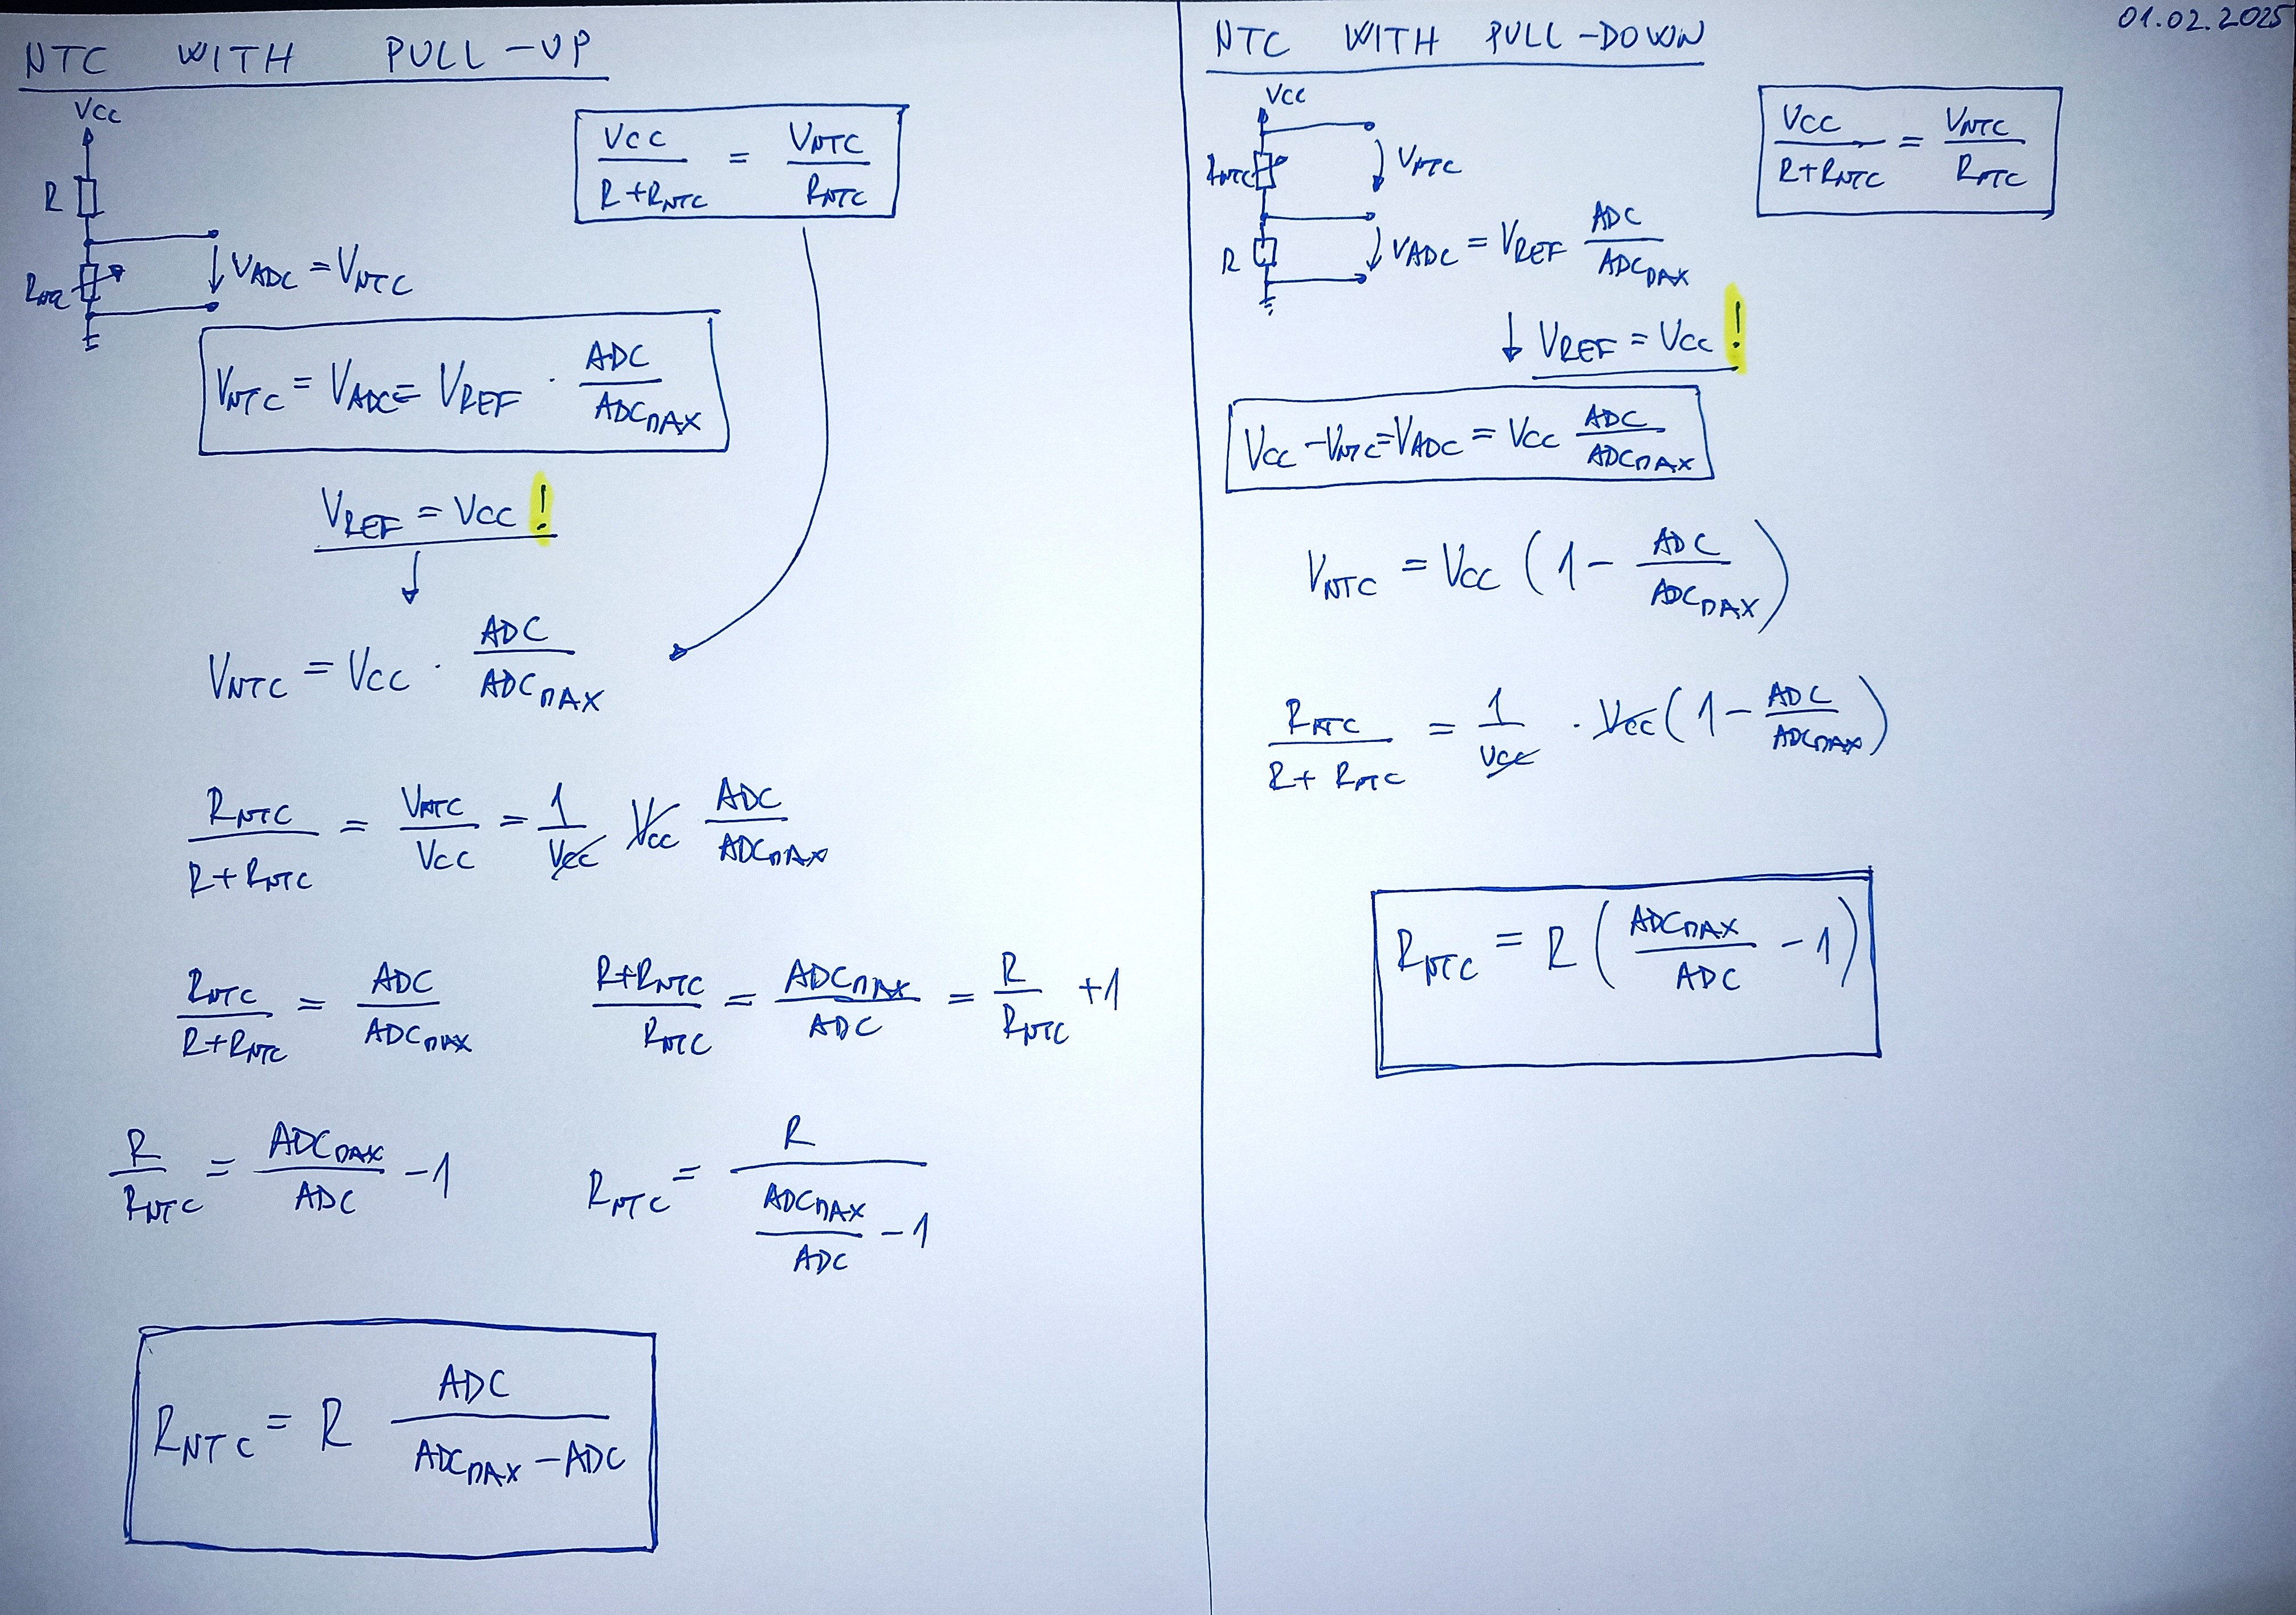 NTC WITH PULL-UP
VCC
R
RNTC
VCC / R+RNTC = VNTC / RNTC
VADC = VNTC
VNTC = VADC = VREF · ADC / ADCMAX
VREF = VCC !
VNTC = VCC · ADC / ADCMAX
RNTC / R+RNTC = VNTC / VCC = 1 / VCC VCC ADC / ADCMAX
RNTC / R+RNTC = ADC / ADCMAX
R+RNTC / RNTC = ADCMAX / ADC = R / RNTC +1
R / RNTC = ADCMAX / ADC -1
RNTC = R / ADCMAX / ADC -1
RNTC = R ADC / ADCMAX - ADC
NTC WITH PULL-DOWN
01.02.2025
VCC
RNTC
R
VNTC
VCC / R+RNTC = VNTC / RNTC
VADC = VREF ADC / ADCMAX
VREF = VCC !
VCC - VNTC = VADC = VCC ADC / ADCMAX
VNTC = VCC ( 1 - ADC / ADCMAX )
RNTC / R+ RNTC = 1 / VCC · VCC ( 1 - ADC / ADCMAX )
RNTC = R ( ADCMAX / ADC -1 )